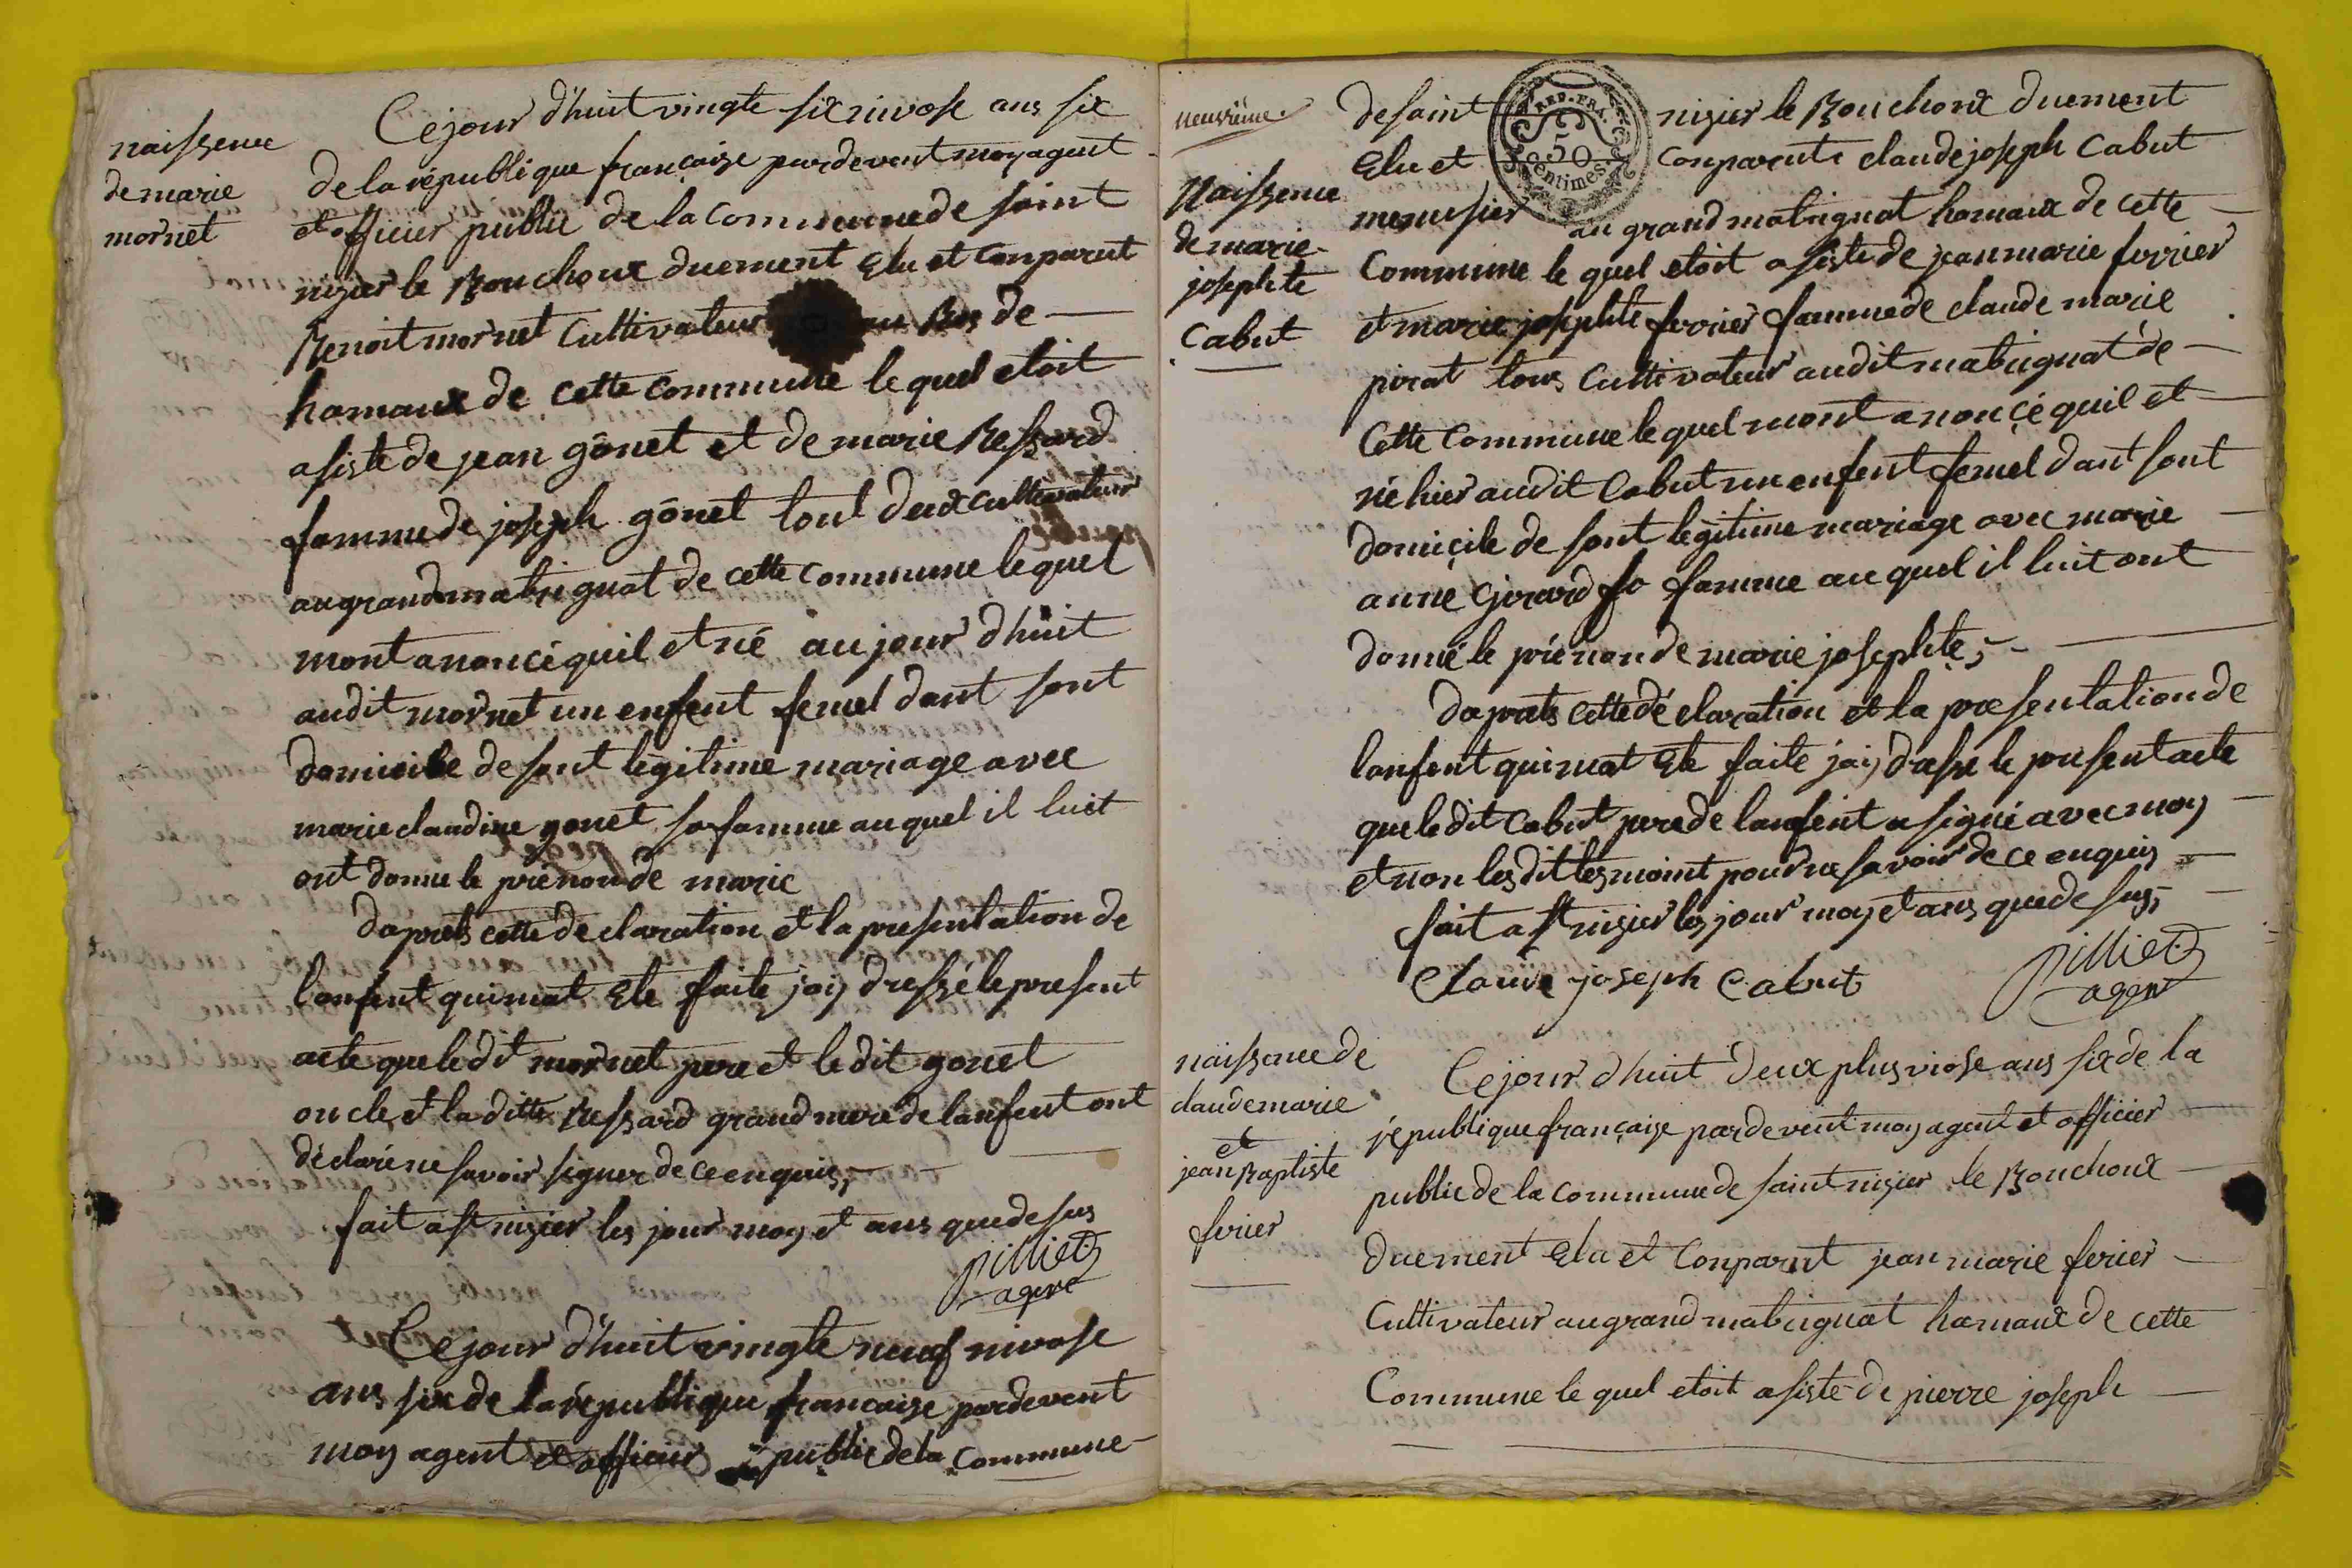 naissence
de marie
mornet
Ce jour d'huit vingte six nivose ans six
de la république française pardevent moy agent
et officier public de la commune de saint
nizier le Bouchoux duement Elu et Conparut
Benoit mornet Cultivateur au Bos de
hamaux de cette commune le quel etoit
asiste de jean gônet et de marie Bessard
famme de joseph gônet tout deux cultivateur
au grand matrignat de cette commune le quel
mont anoncé quil et né au jour d'huit
audit mornet un enfent femel dant sont
domicile de sont legitime mariage avec
marie claudine gonet sa famme au quel il luit
ont donne le prenon de marie
daprets cette declaration et la presentation de
lenfent qui mat Ete faite jaiy dressé le present
acte que le dit mornet pere et le dit gonet
oncle et la ditte Bessard grand mere de lanfent ont
déclaré ne savoir signer de ce enquis,
fait a st nizier les jour moy et ans que de sus
pilliet
agent
Ce jour d'huit vingte neuf nivose
ans six de la république francaize pardevent
moy agent et officier public de la commune
neuvriéme.
Naissence
de marie
josephte
Cabut
REP. FRA.
50
Centimes
de saint nizier le Bouchoux duement
Elu et Conparente claude joseph Cabut
menusier au grand matrignat hamaux de cette
Commune le quel etoit asiste de jean marie ferrier
et marie josephte ferrier famme de claude marie
pirat tous Cultivateur audit matrignat de
Cette Commune le quel mont anoncé quil et
né hier audit Cabut un enfent femel dant sont
domicile de sont legitime mariage avec marie
anne Girard sa famme au quel il luit ont
donné le prénon de marie josephte;
daprets cette dé claration et la presentation de
lanfent qui mat Ete faite jaiy dresse le present acte
que le dit Cabut pere de lanfent a signé avec moy
et non les dit tesmoint pour ne savoir de ce enquis
fait a st nizier les jour moy et ans que de sus,
Claude joseph Cabut
pilliet
agent
naissence de
claude marie
et
jean Baptiste
ferier
Ce jour d'huit deux plusviose ans six de la
république française pardevent moy agent et officier
public de la commune de saint nizier le Bouchoux
duement Elu et Conparut jean marie ferier
Cultivateur au grand matrignat hamaux de cette
Commune le quel etoit asiste de pierre joseph